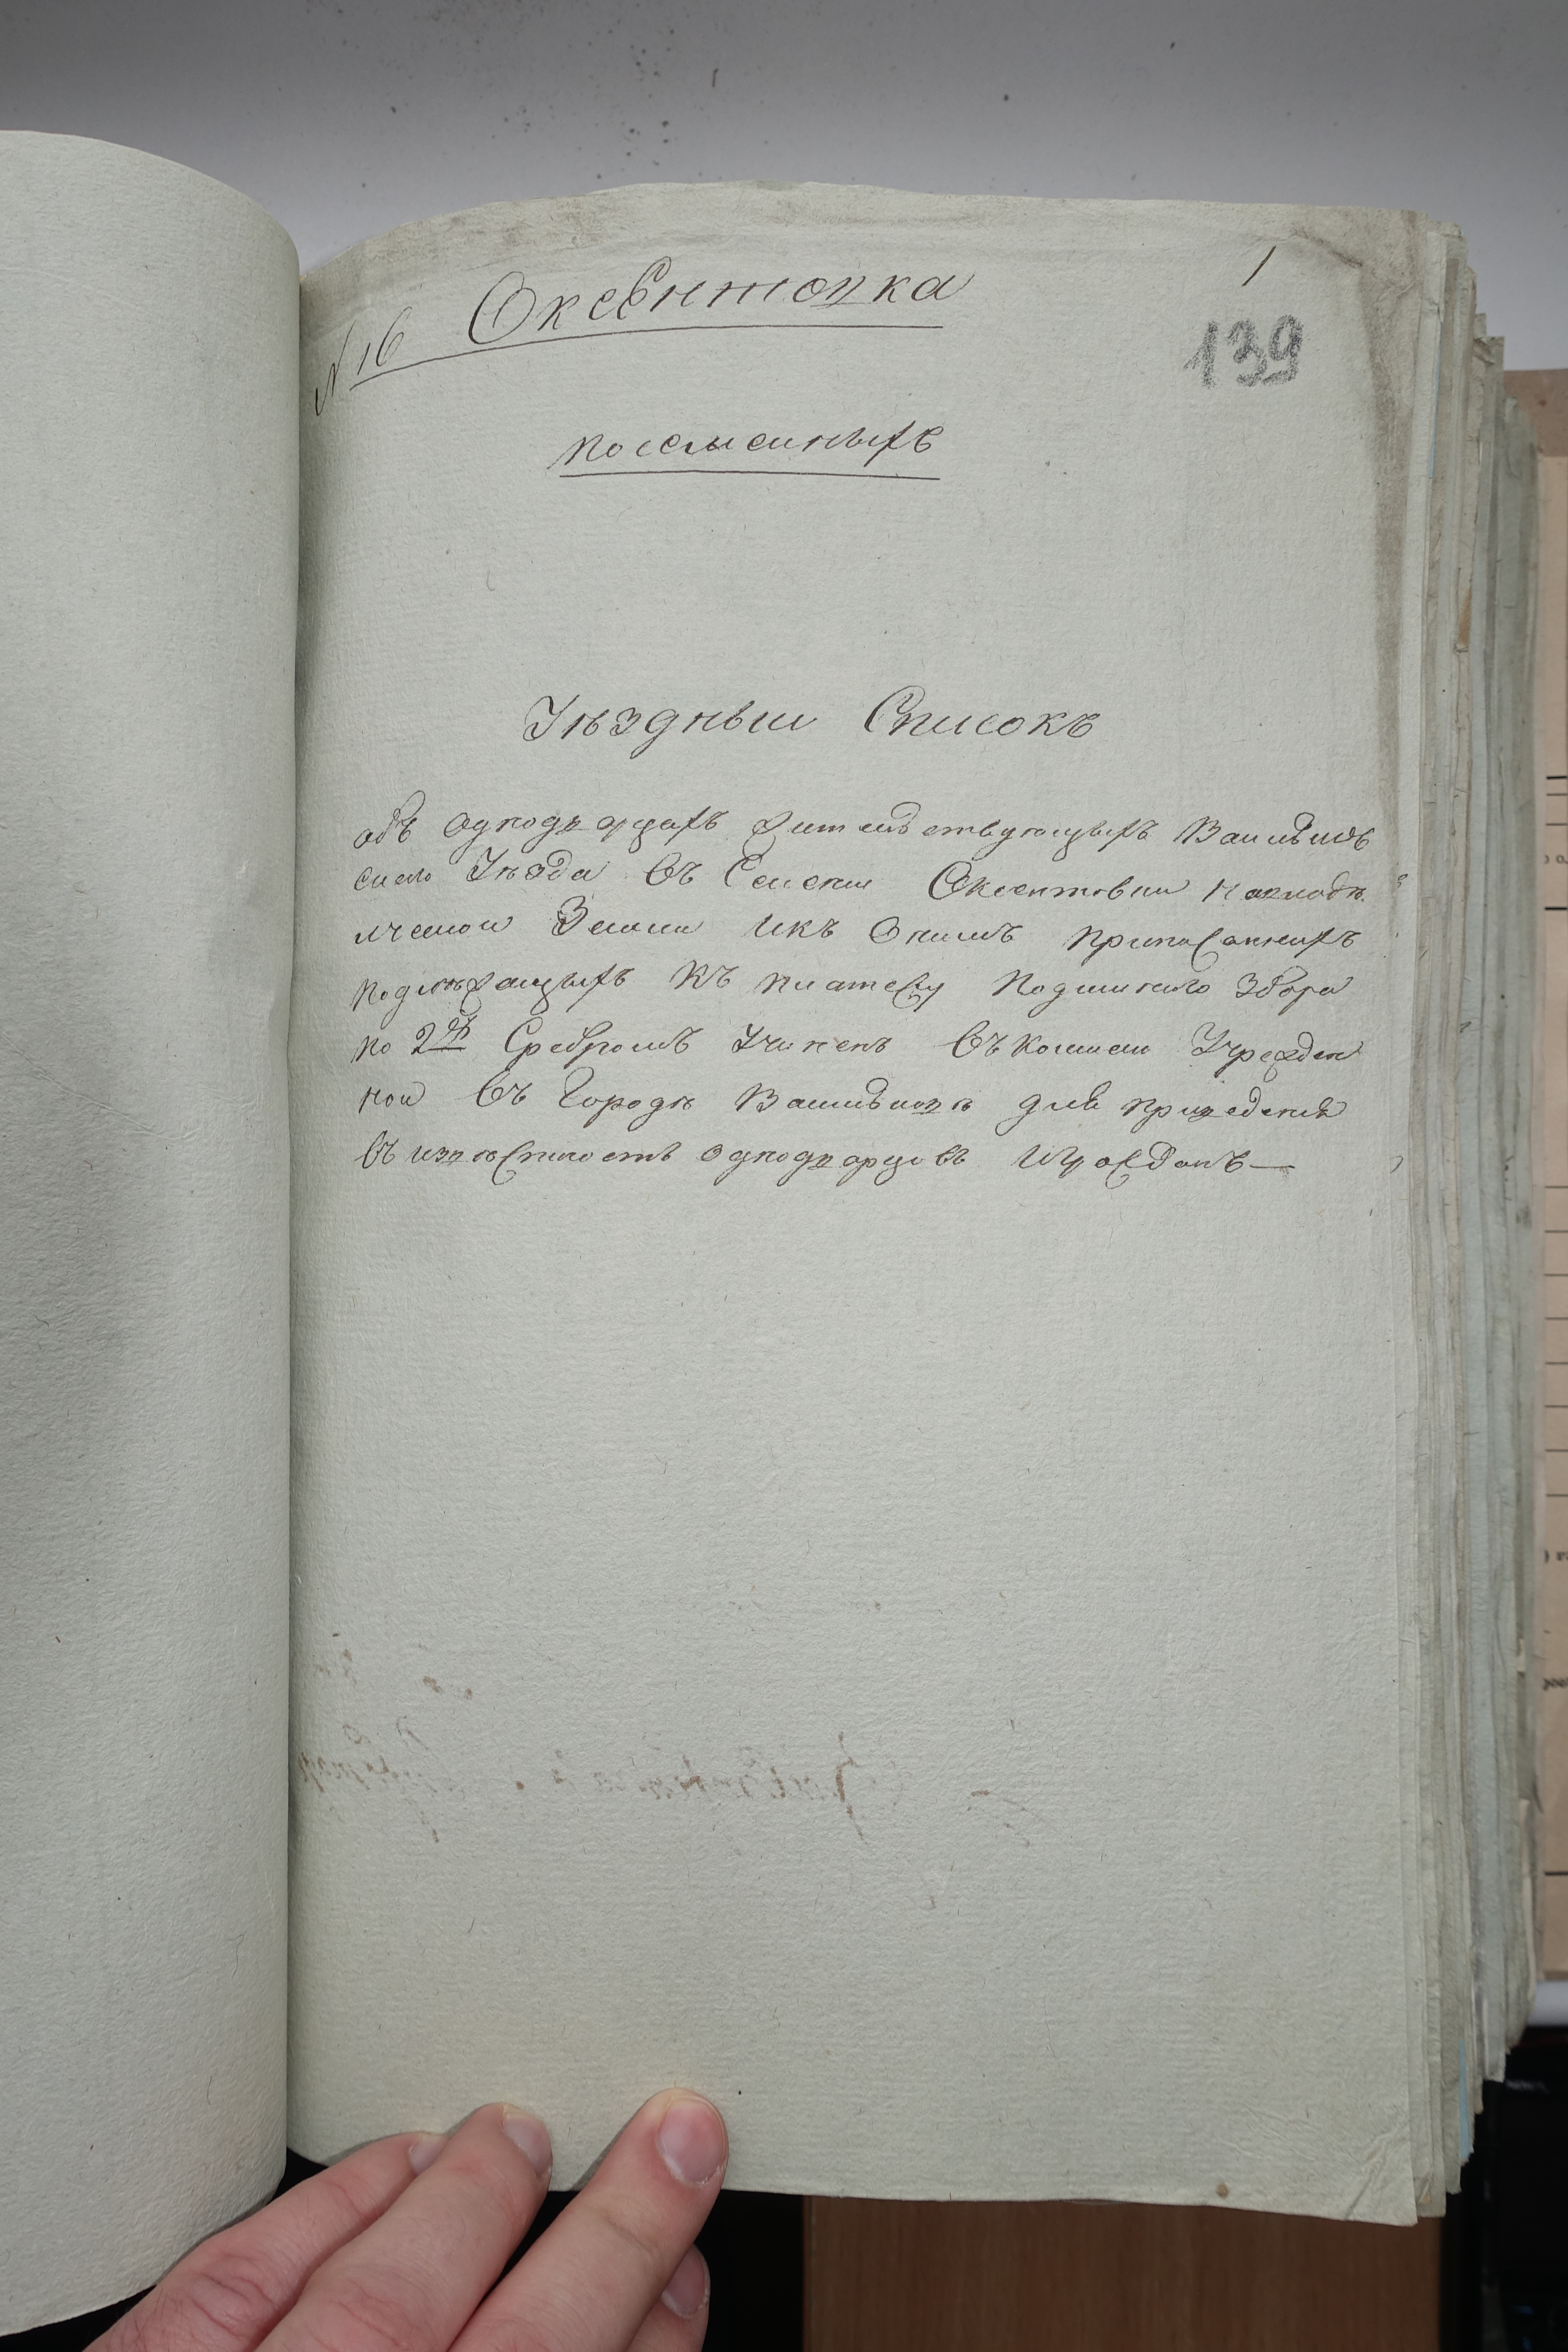 1
№ 16 Оксентовка
139
поселенныхъ
Уѣздныи Списокъ
объ однодворцахъ жительствующыхъ Василков
скаго Уѣзда въ Селении Оксентовки на владѣ
лческой Земли икъ онымъ приписанныхъ
подлежащыхъ къ платежу Подымнаго Збора
по 2 р Сребромъ Учиненъ въ комисии Учрежден
ной въ Городѣ Василковѣ для приведения
въ известность однодворцовъ и Гражданъ —